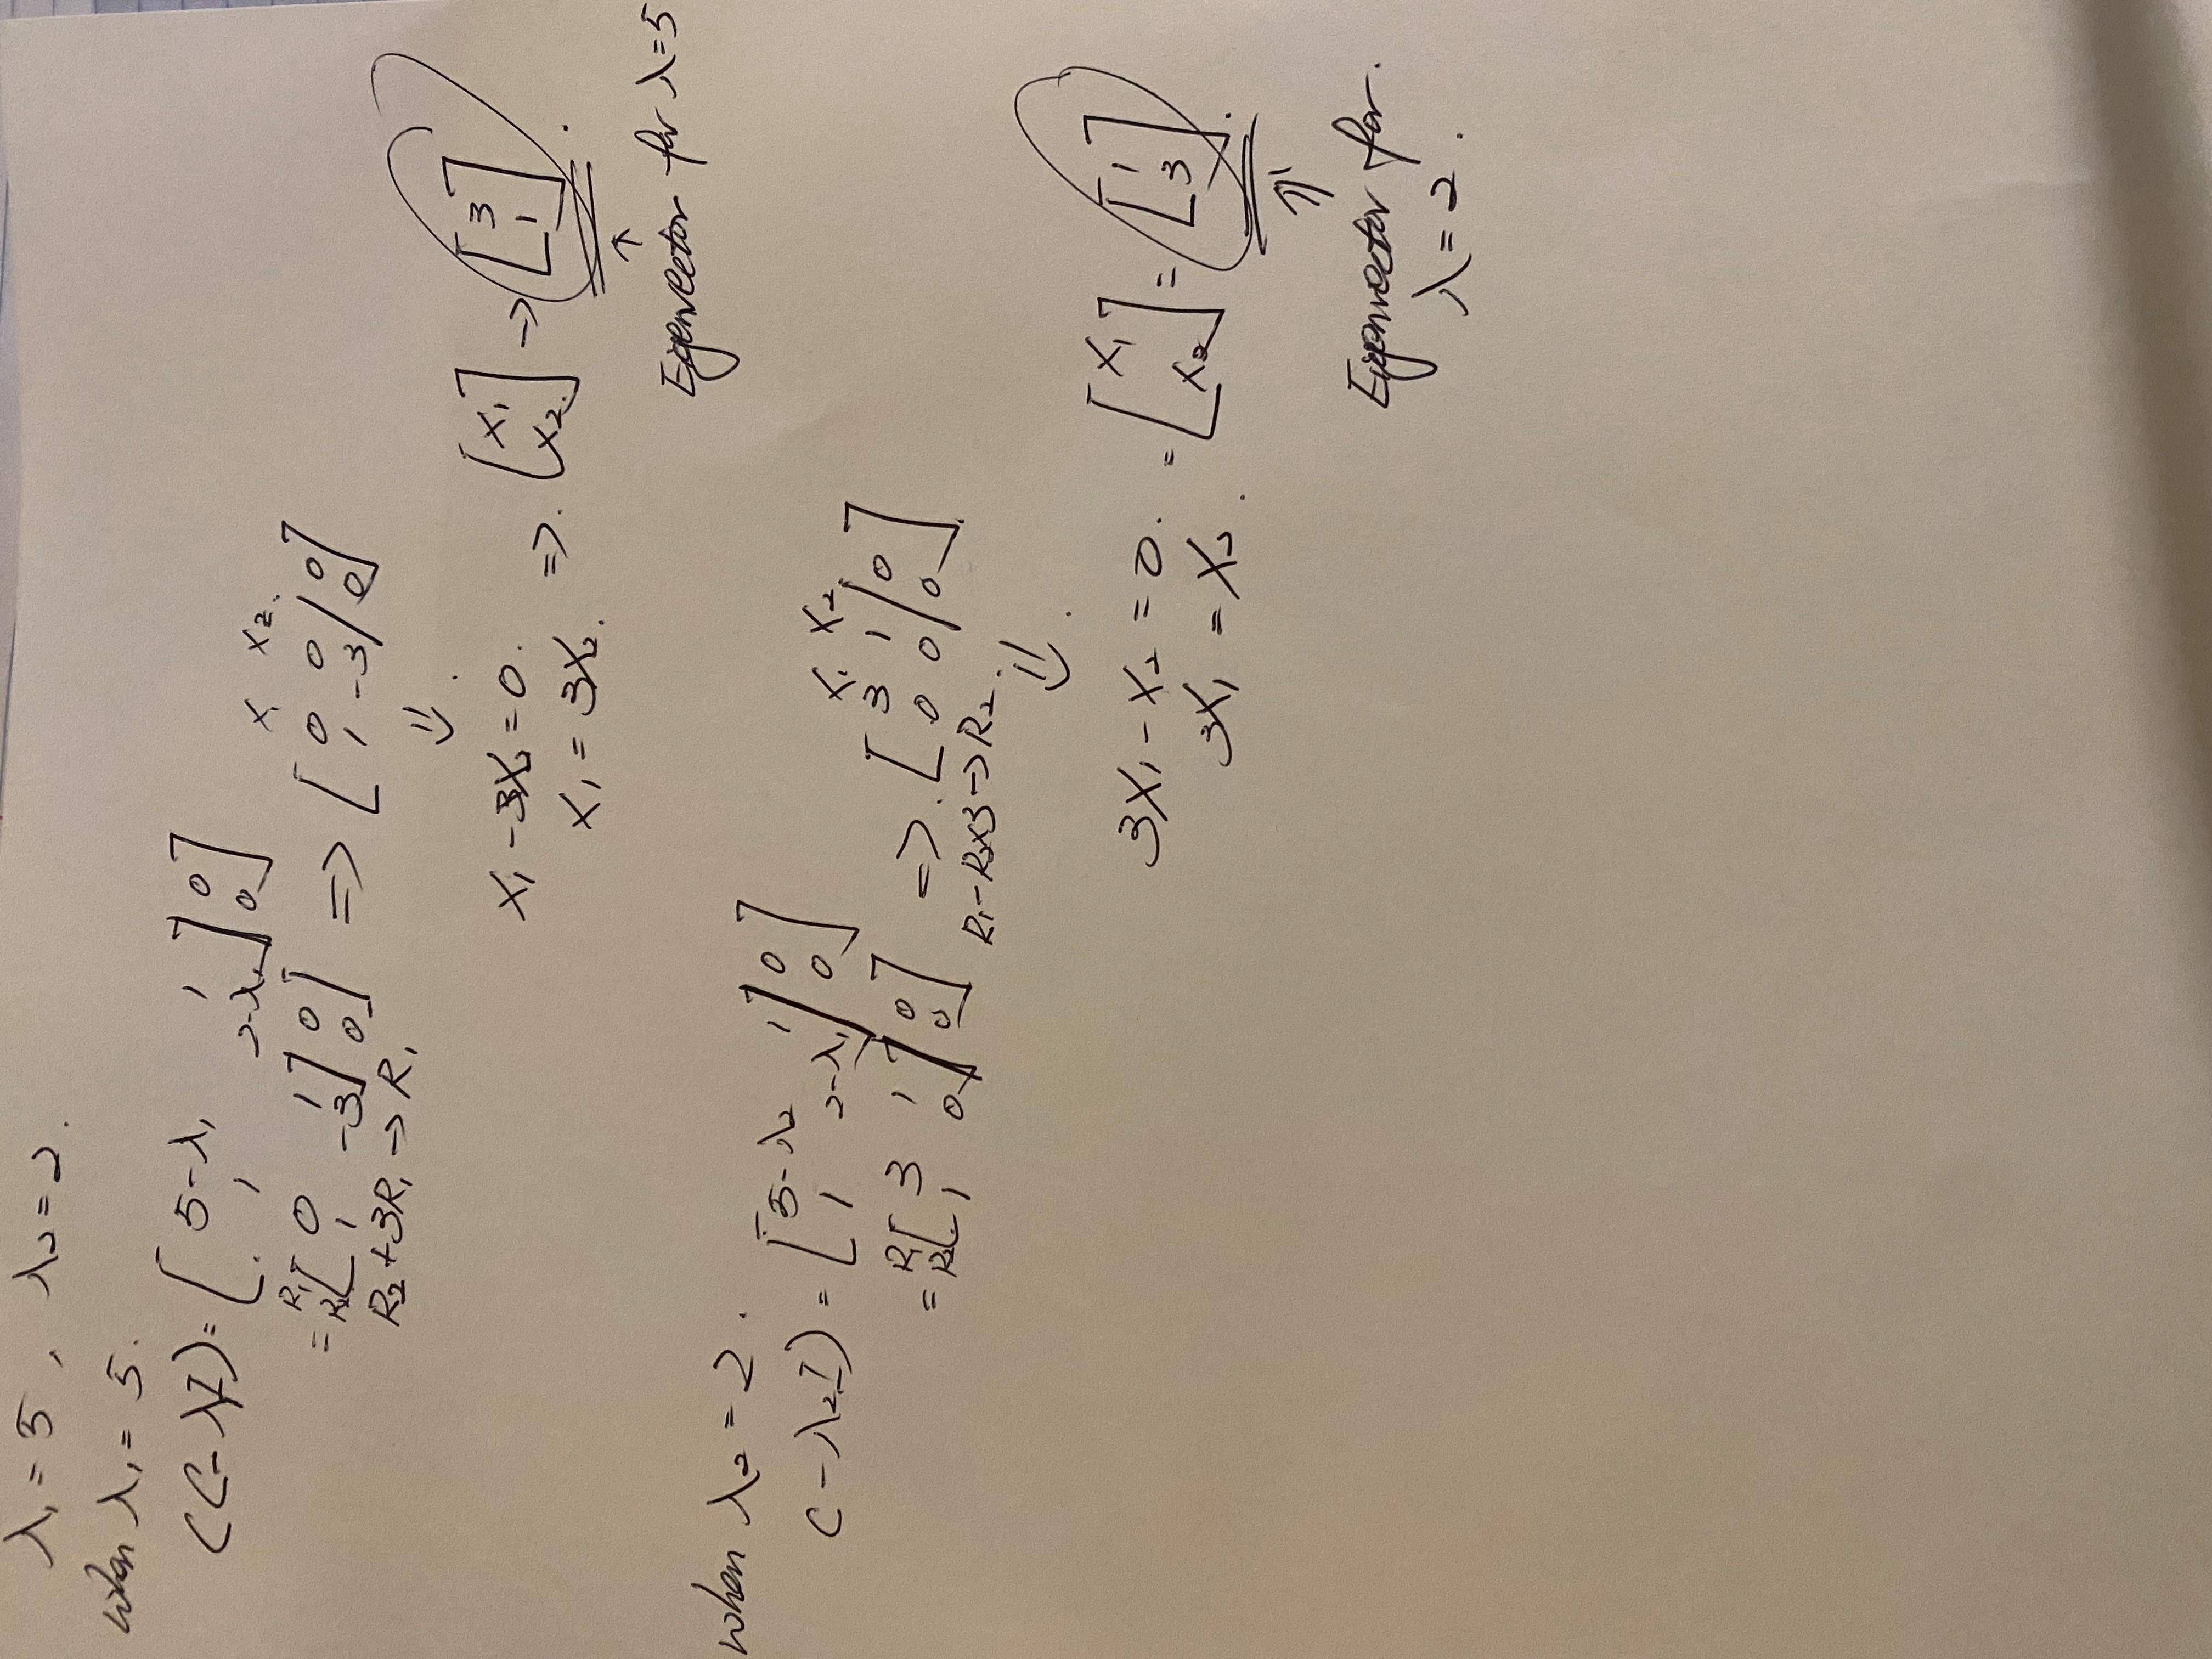 λ₁ = 5 , λ₂ = 2 .
when λ₁ = 5 .
(C - λI) = [ 5-λ₁ 1 ] 0 ]
1 2-λ₁ ] 0 ]
= R₁ [ 0 1 ] 0 ] => [ 0 0 | 0 ]
R₂ [ 1 -3 ] 0 ] [ 1 -3 | 0 ]
x₁ x₂ .
R₂ + 3R₁ → R₁
⇓ .
x₁ - 3x₂ = 0 .
x₁ = 3x₂ .
=> . [ x₁ x₂ ] → [ 3 1 ] .
↑
Eigenvector for λ = 5
when λ₂ = 2 .
C - λ₂I) = [ 5-λ₂ 1 | 0 ]
1 2-λ₁ | 0 ]
x₁ x₂
= R₁ [ 3 1 ] 0 ] => . [ 3 1 | 0 ]
R₂ [ 1 0 ] 0 ] [ 0 0 | 0 ]
R₁ - R₂×3 → R₂ .
⇓ .
3x₁ - x₂ = 0 .
3x₁ = x₂ .
= [ x₁ x₂ ] = [ 1 3 ] .
⇑
Eigenvector for .
λ = 2 .